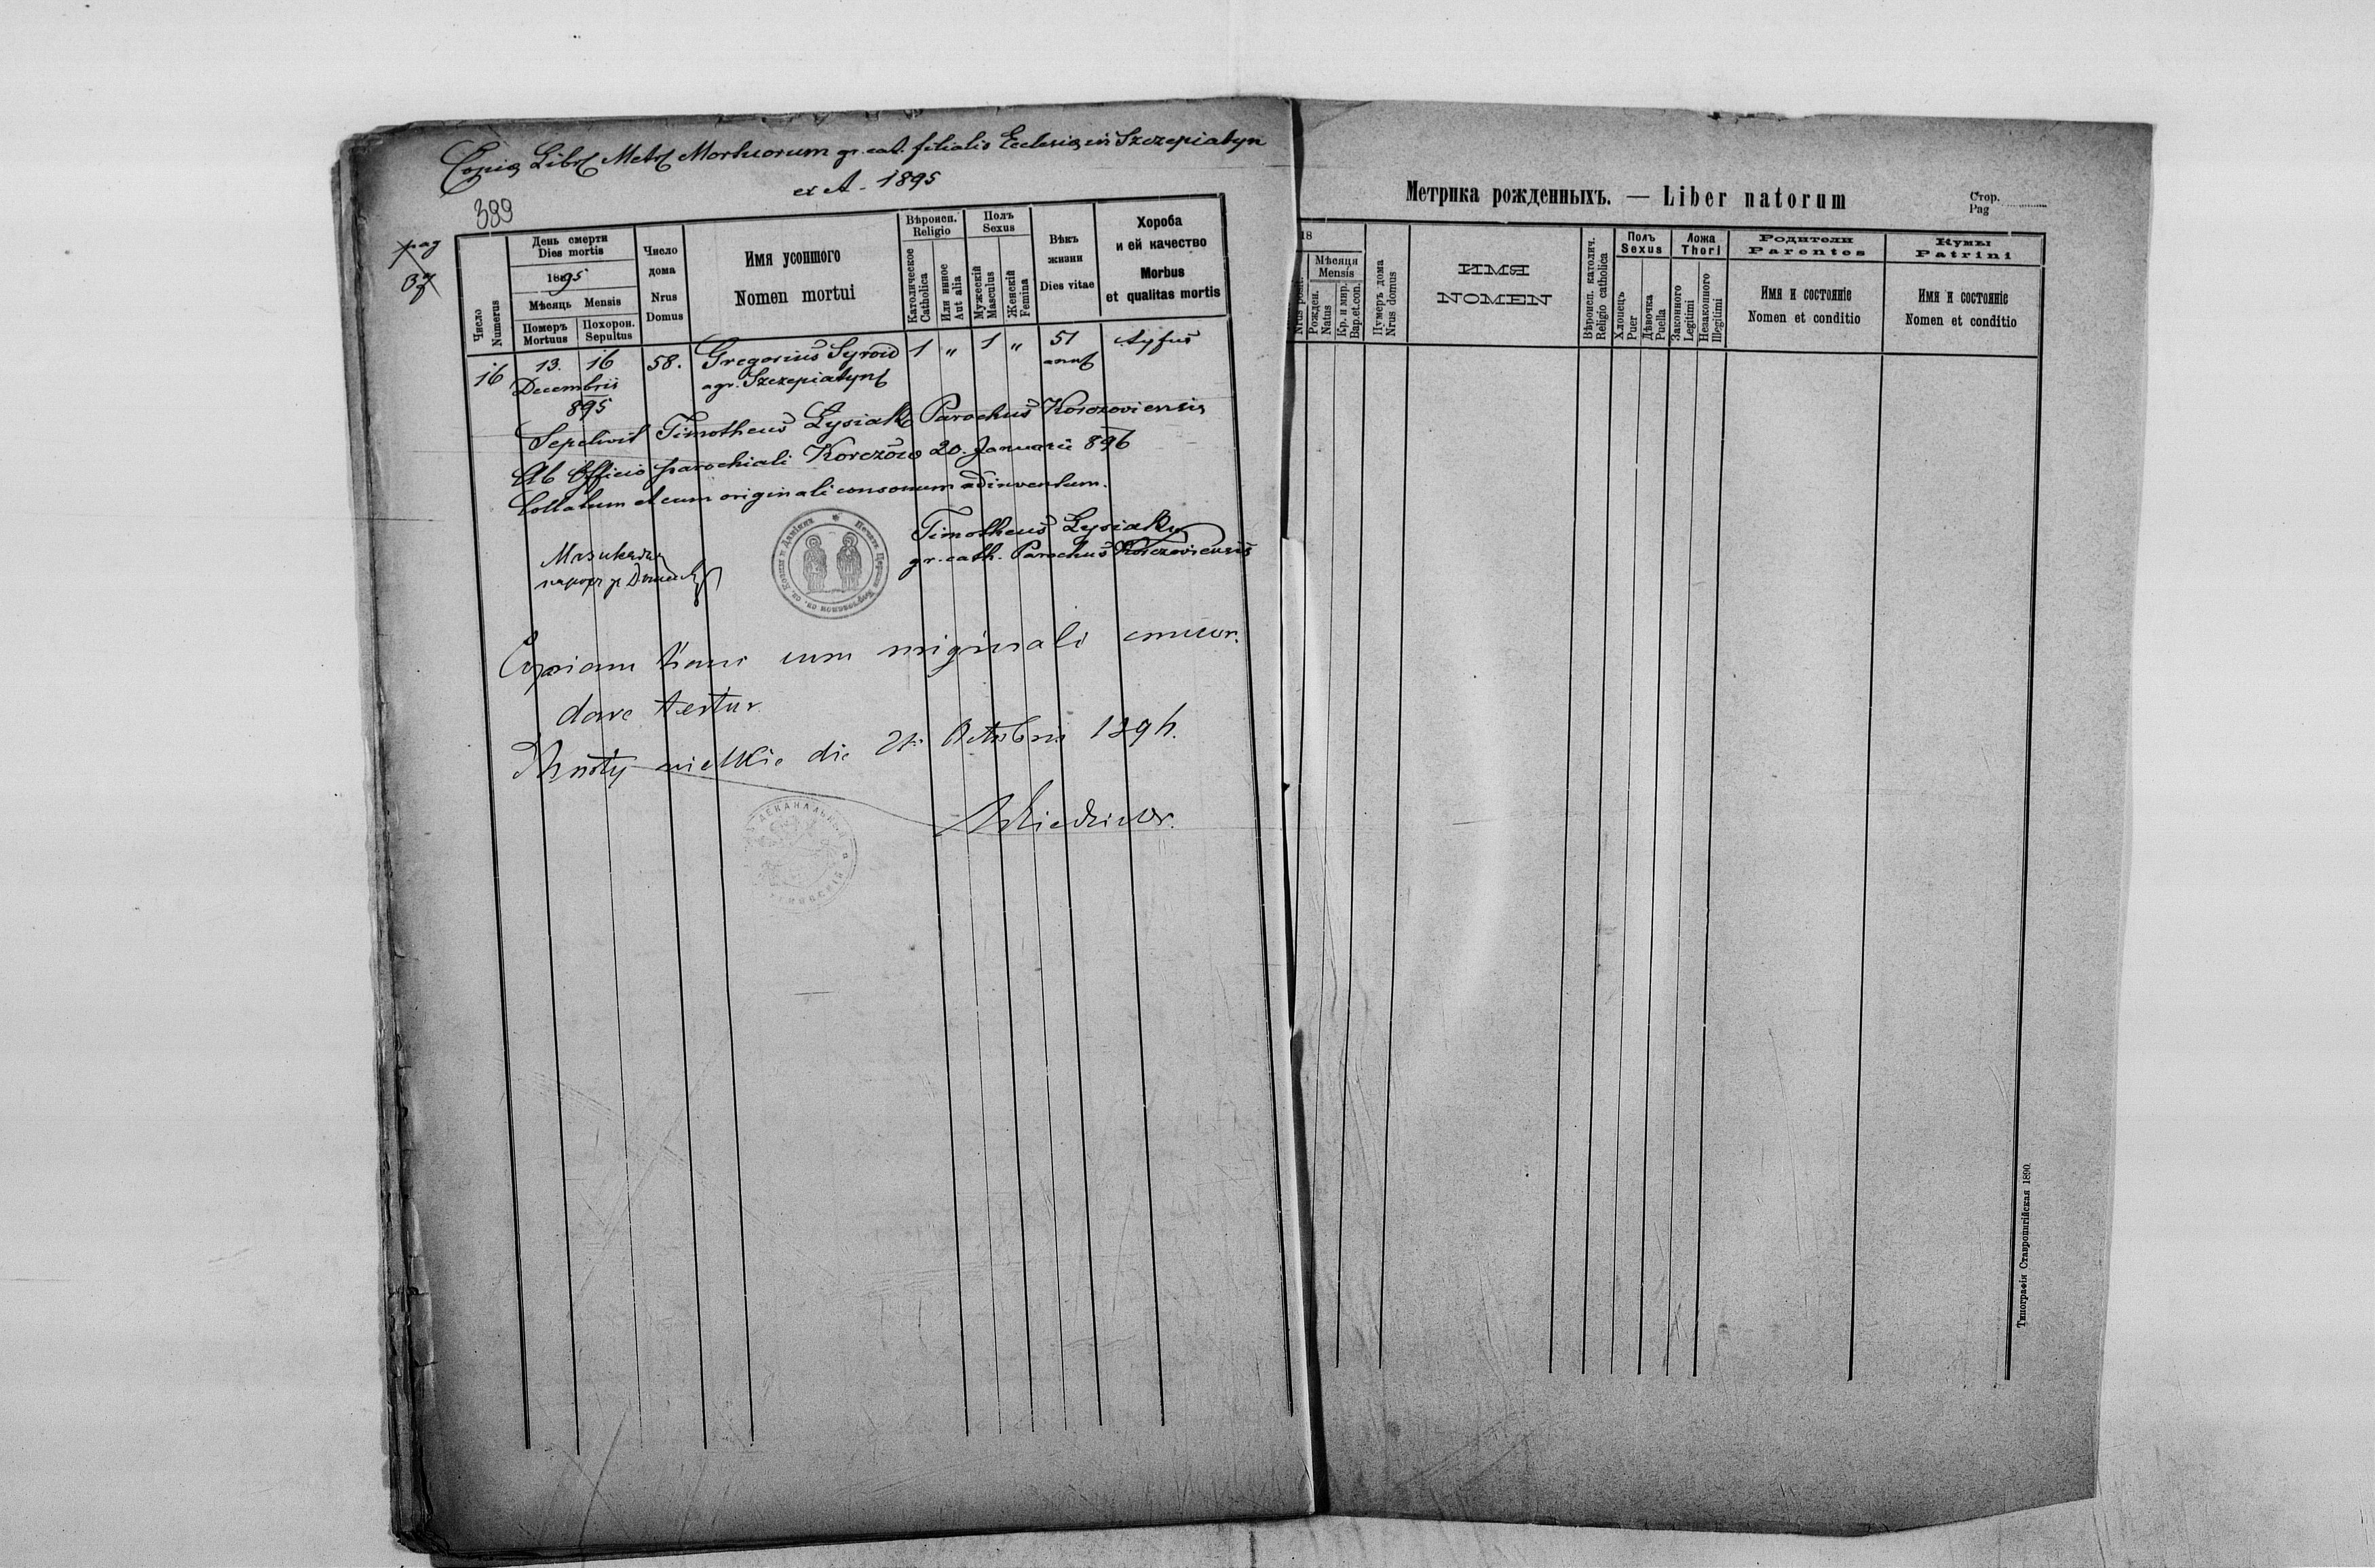 Copia Libr Metr Mortuorum gr. cat. filialis Ecclesia in Szczepiatyn
ex A. 1895
389
pag
37
Число
Numerus
День смерти
Dies mortis
1895
Мѣсяць Mensis
Померъ
Mortuus
Похорон.
Sepultus
Число
дома
Nrus
Domus
Имя усопшого
Nomen mortui
Вѣроисп.
Religio
Католическое
Catholica
Или инное
Aut alia
Полъ
Sexus
Мужескій
Masculus
Женскій
Femina
Вѣкъ
жизни
Dies vitae
Хороба
и ей качество
Morbus
et qualitas mortis
16 13. 16 58. Gregorius Syroid 1 " 1 " 51 tyfus
Decembris agr. Szczepiatyn
895
Sepelivit Timotheus Łysiak Parochus Korczoviensis
Ab Officio parochiali Korczów 20. Januarii 896
Collatum et cum originali consonum adinventum.
Timotheus Łysiak
gr. cath. Parochus Korczoviensis
Copiam hanc cum originali concor.
dare testur
wielkie die Octobris 1896.
ДЕКАНАЛЬНЫЙ
Метрика рожденныхъ. — Liber natorum
Стор.
Pag
18
Nrus posit.
Мѣсяця
Mensis
Рожден.
Natus
Кр. и мир.
Bap.et.con.
Нумеръ дома
Nrus domus
ИМЯ
NOMEN
Вѣроисп. католич.
Religio catholica
Полъ
Sexus
Хлопецъ
Puer
Дѣвочка
Puella
Ложа
Thori
Законного
Legitimi
Незаконного
Illegitimi
Родители
Parentes
Имя и состояніе
Nomen et conditio
Кумы
Patrini
Имя и состояніе
Nomen et conditio
Типографія Ставропигійская 1890.